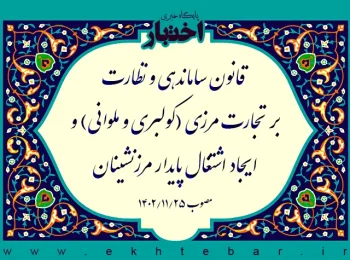 پایگاه خبری
اختبار
قانون ساماندهی و نظارت
بر تجارت مرزی (کولبری و ملوانی) و
ایجاد اشتغال پایدار مرزنشینان
مصوب ۱۴۰۲/۱۱/۲۵
www.ekhtebar.ir